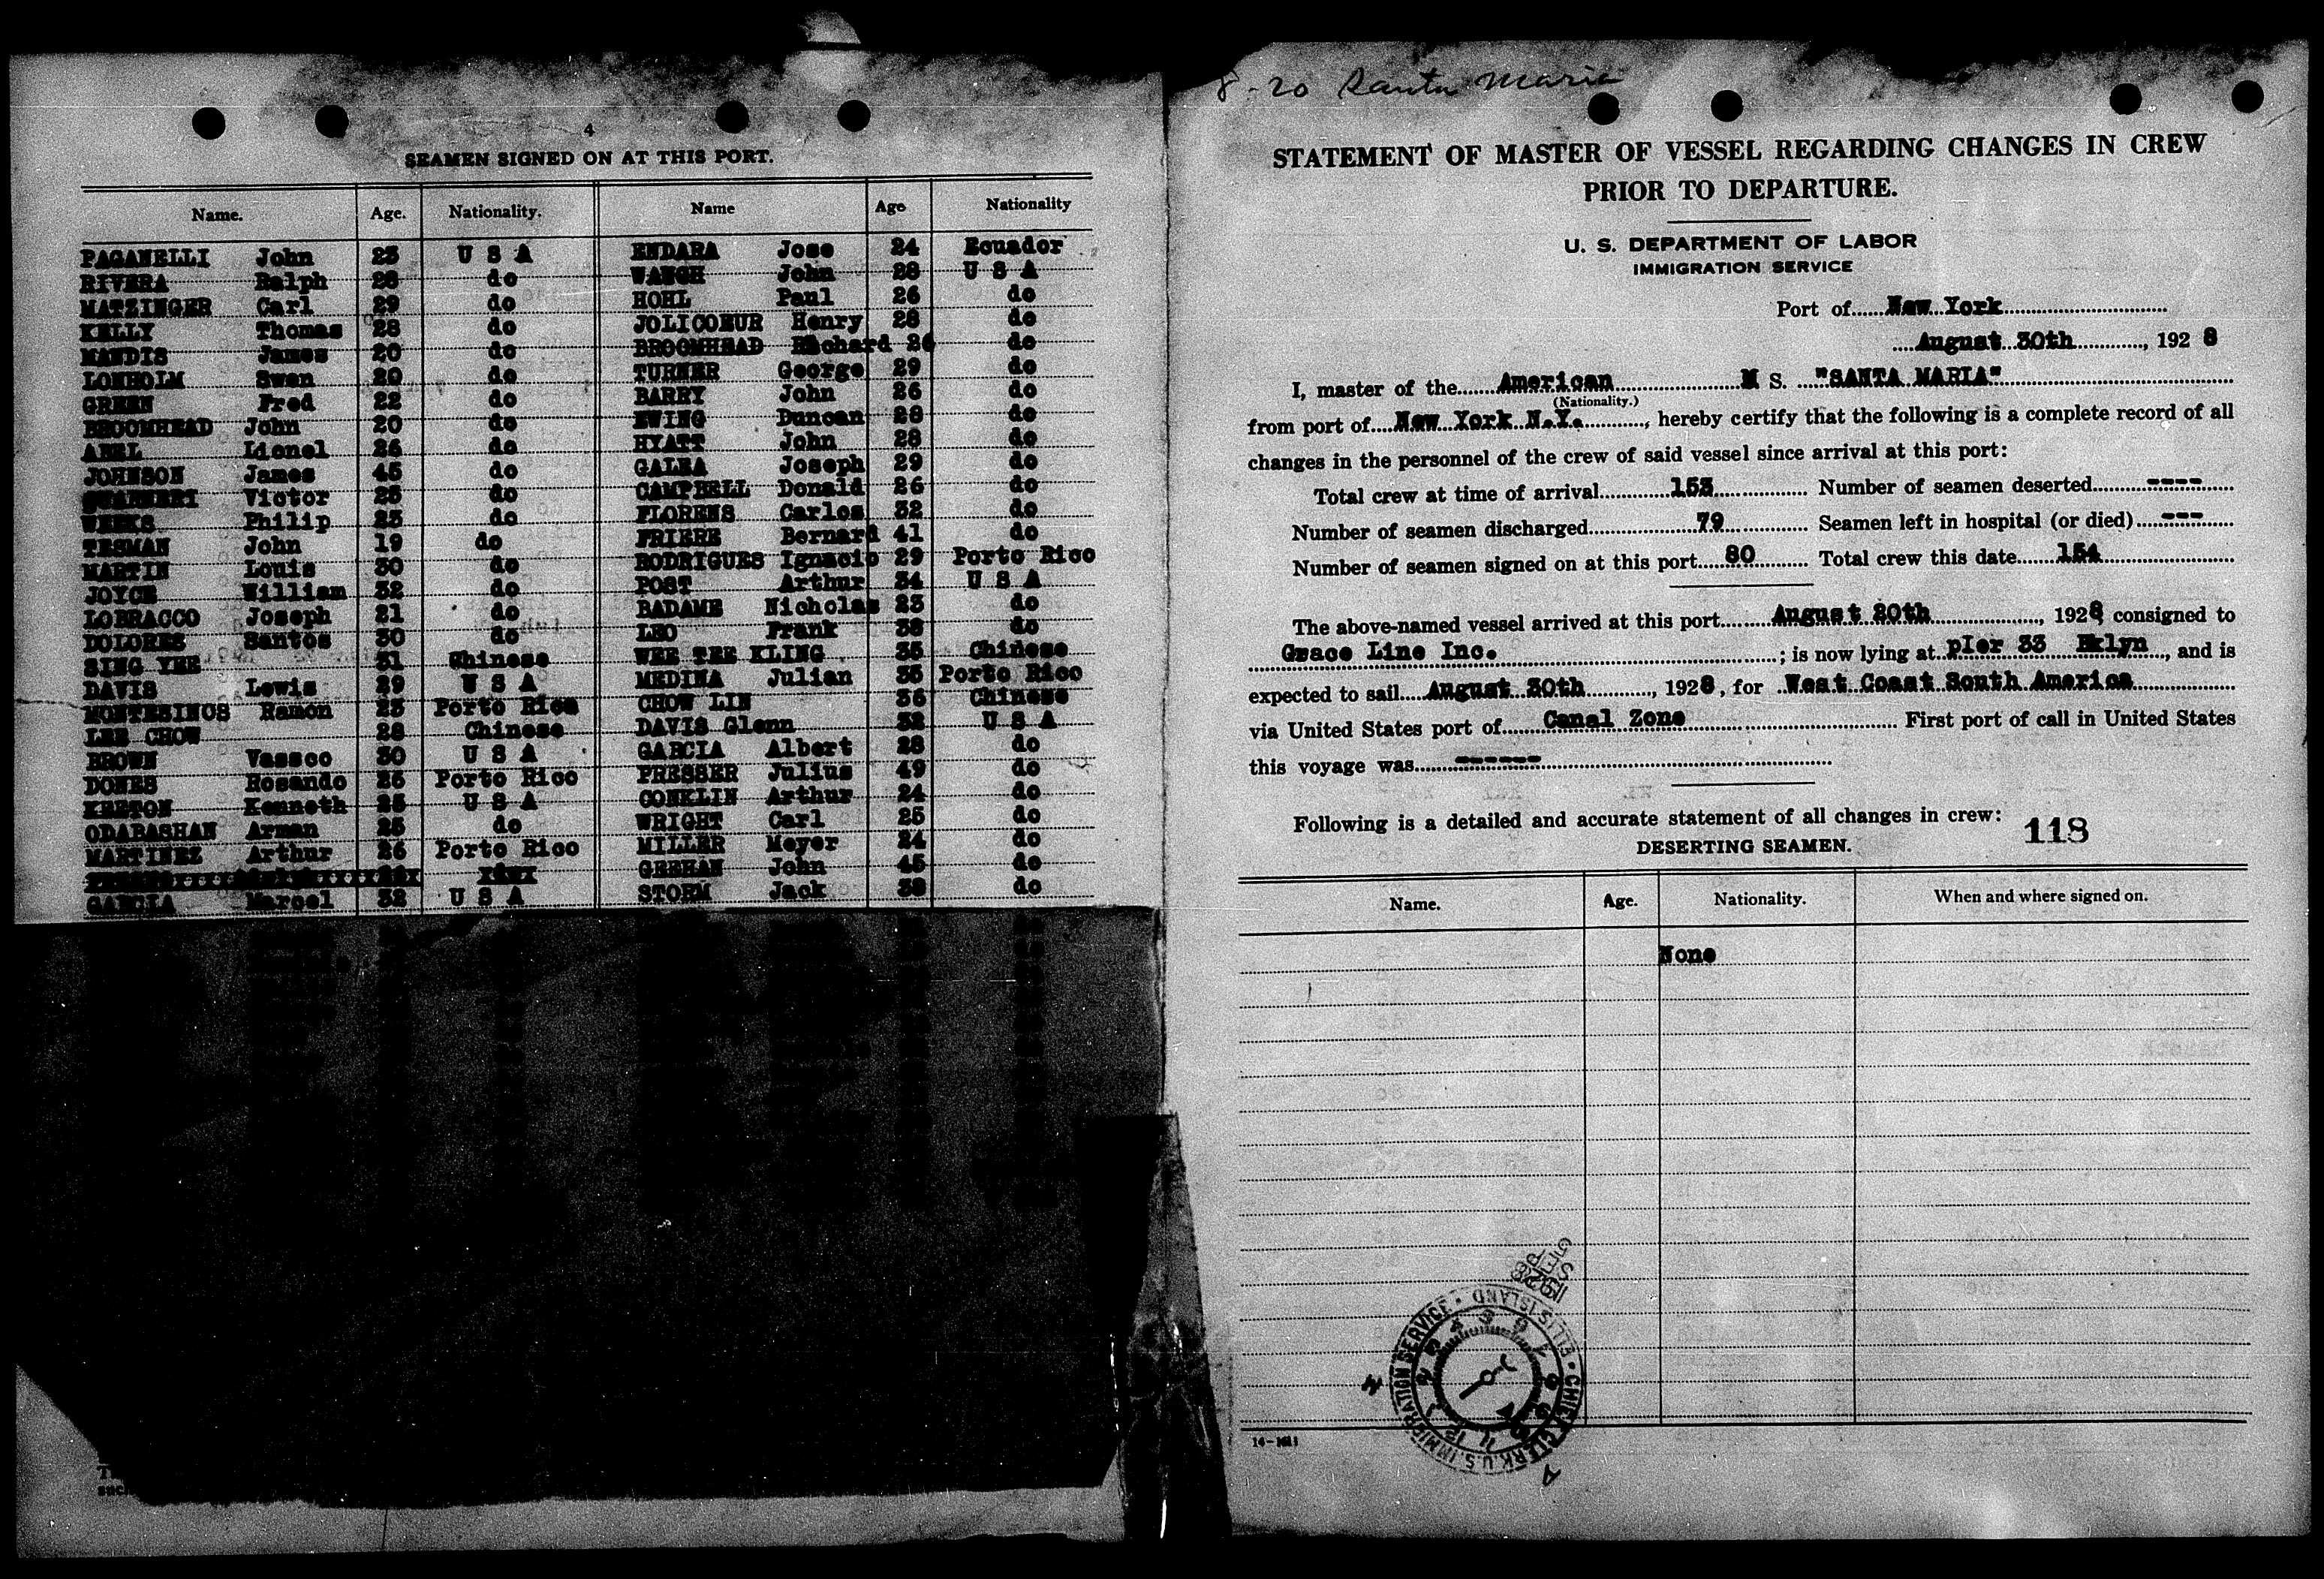 4
SEAMEN SIGNED ON AT THIS PORT.
Name. Age. Nationality. Name Age Nationality
PAGANELLI John 23 U S A ENDARA Jose 24 Ecuador
RIVERA Ralph 28 do WAUGH John 28 U S A
MATZINGER Carl 29 do HOHL Paul 26 do
KELLY Thomas 28 do JOLICOEUR Henry 28 do
MANDIS James 20 do BROOMHEAD Richard 26 do
LONHOLM Swen 20 do TURNER George 29 do
GREEN Fred 22 do BARRY John 26 do
BROOMHEAD John 20 do EWING Duncan 28 do
ABEL Lionel 26 do HYATT John 28 do
JOHNSON James 45 do GALEA Joseph 29 do
Victor 23 do CAMPBELL Donald 26 do
WEEKS Philip 23 do FLORENS Carlos 32 do
TESMAN John 19 do FRIERE Bernard 41 do
MARTIN Louis 30 do RODRIGUES Ignacio 29 Porto Rico
JOYCE William 32 do POST Arthur 34 U S A
LOBRACCO Joseph 21 do BADAME Nicholas 23 do
DOLORES Santos 30 do LEO Frank 38 do
SING YEE 31 Chinese WEE TEE KLING 35 Chinese
DAVIS Lewis 29 U S A MEDINA Julian 35 Porto Rico
MONTESINOS Ramon 23 Porto Rico CHOW LIN 36 Chinese
LEE CHOW 28 Chinese DAVIS Glenn 32 U S A
BROWN Vassco 30 U S A GARCIA Albert 28 do
DONES Rosando 26 Porto Rico PRESSER Julius 49 do
KEETON Kenneth 25 U S A CONKLIN Arthur 24 do
ODABASHAN Arman 25 do WRIGHT Carl 25 do
MARTINEZ Arthur 26 Porto Rico MILLER Meyer 24 do
GEEHAN John 45 do
GARCIA Marcel 32 U S A STORM Jack 38 do
8-20 Santa Maria
STATEMENT OF MASTER OF VESSEL REGARDING CHANGES IN CREW
PRIOR TO DEPARTURE.
U. S. DEPARTMENT OF LABOR
IMMIGRATION SERVICE
Port of New York
August 30th, 1928
I, master of the American M S. "SANTA MARIA"
(Nationality.)
from port of New York N.Y., hereby certify that the following is a complete record of all
changes in the personnel of the crew of said vessel since arrival at this port:
Total crew at time of arrival 153 Number of seamen deserted ----
Number of seamen discharged 79 Seamen left in hospital (or died) ---
Number of seamen signed on at this port 80 Total crew this date 154
The above-named vessel arrived at this port August 20th, 1928 consigned to
Grace Line Inc. ; is now lying at pIer 33 Bklyn, and is
expected to sail August 30th, 1928, for West Coast South America
via United States port of Canal Zone First port of call in United States
this voyage was ------
Following is a detailed and accurate statement of all changes in crew:
118
DESERTING SEAMEN.
Name. Age. Nationality. When and where signed on.
None
1928
CHIEF CLERK U.S. IMMIGRATION SERVICE · ELLIS ISLAND
14-1611